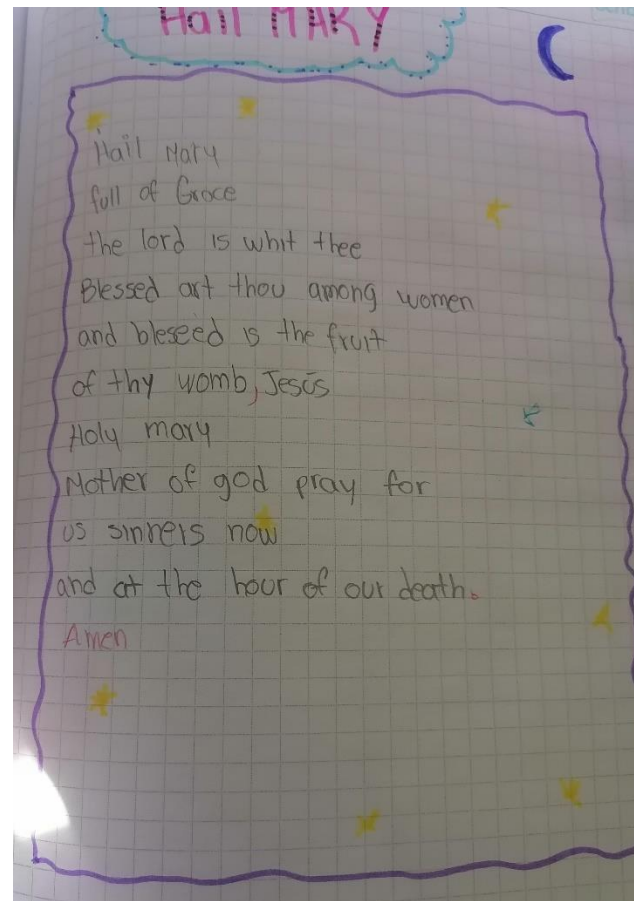 Hail MARY
Hail Mary
full of Grace
the lord is whit thee
Blessed art thou among women
and bleseed is the fruit
of thy womb, Jesús
Holy mary
Mother of god pray for
us sinners now
and at the hour of our death.
Amen